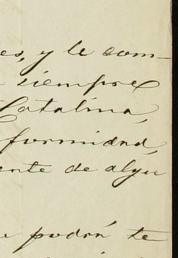 es, y le com-
siempre
Catalina,
formidad,
ente de algu
podrá te